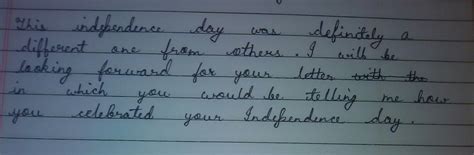 This independence day was definitely a
different one from others. I will be
looking forward for your letter with the
in which you would be telling me how
you celebrated your Independence day.